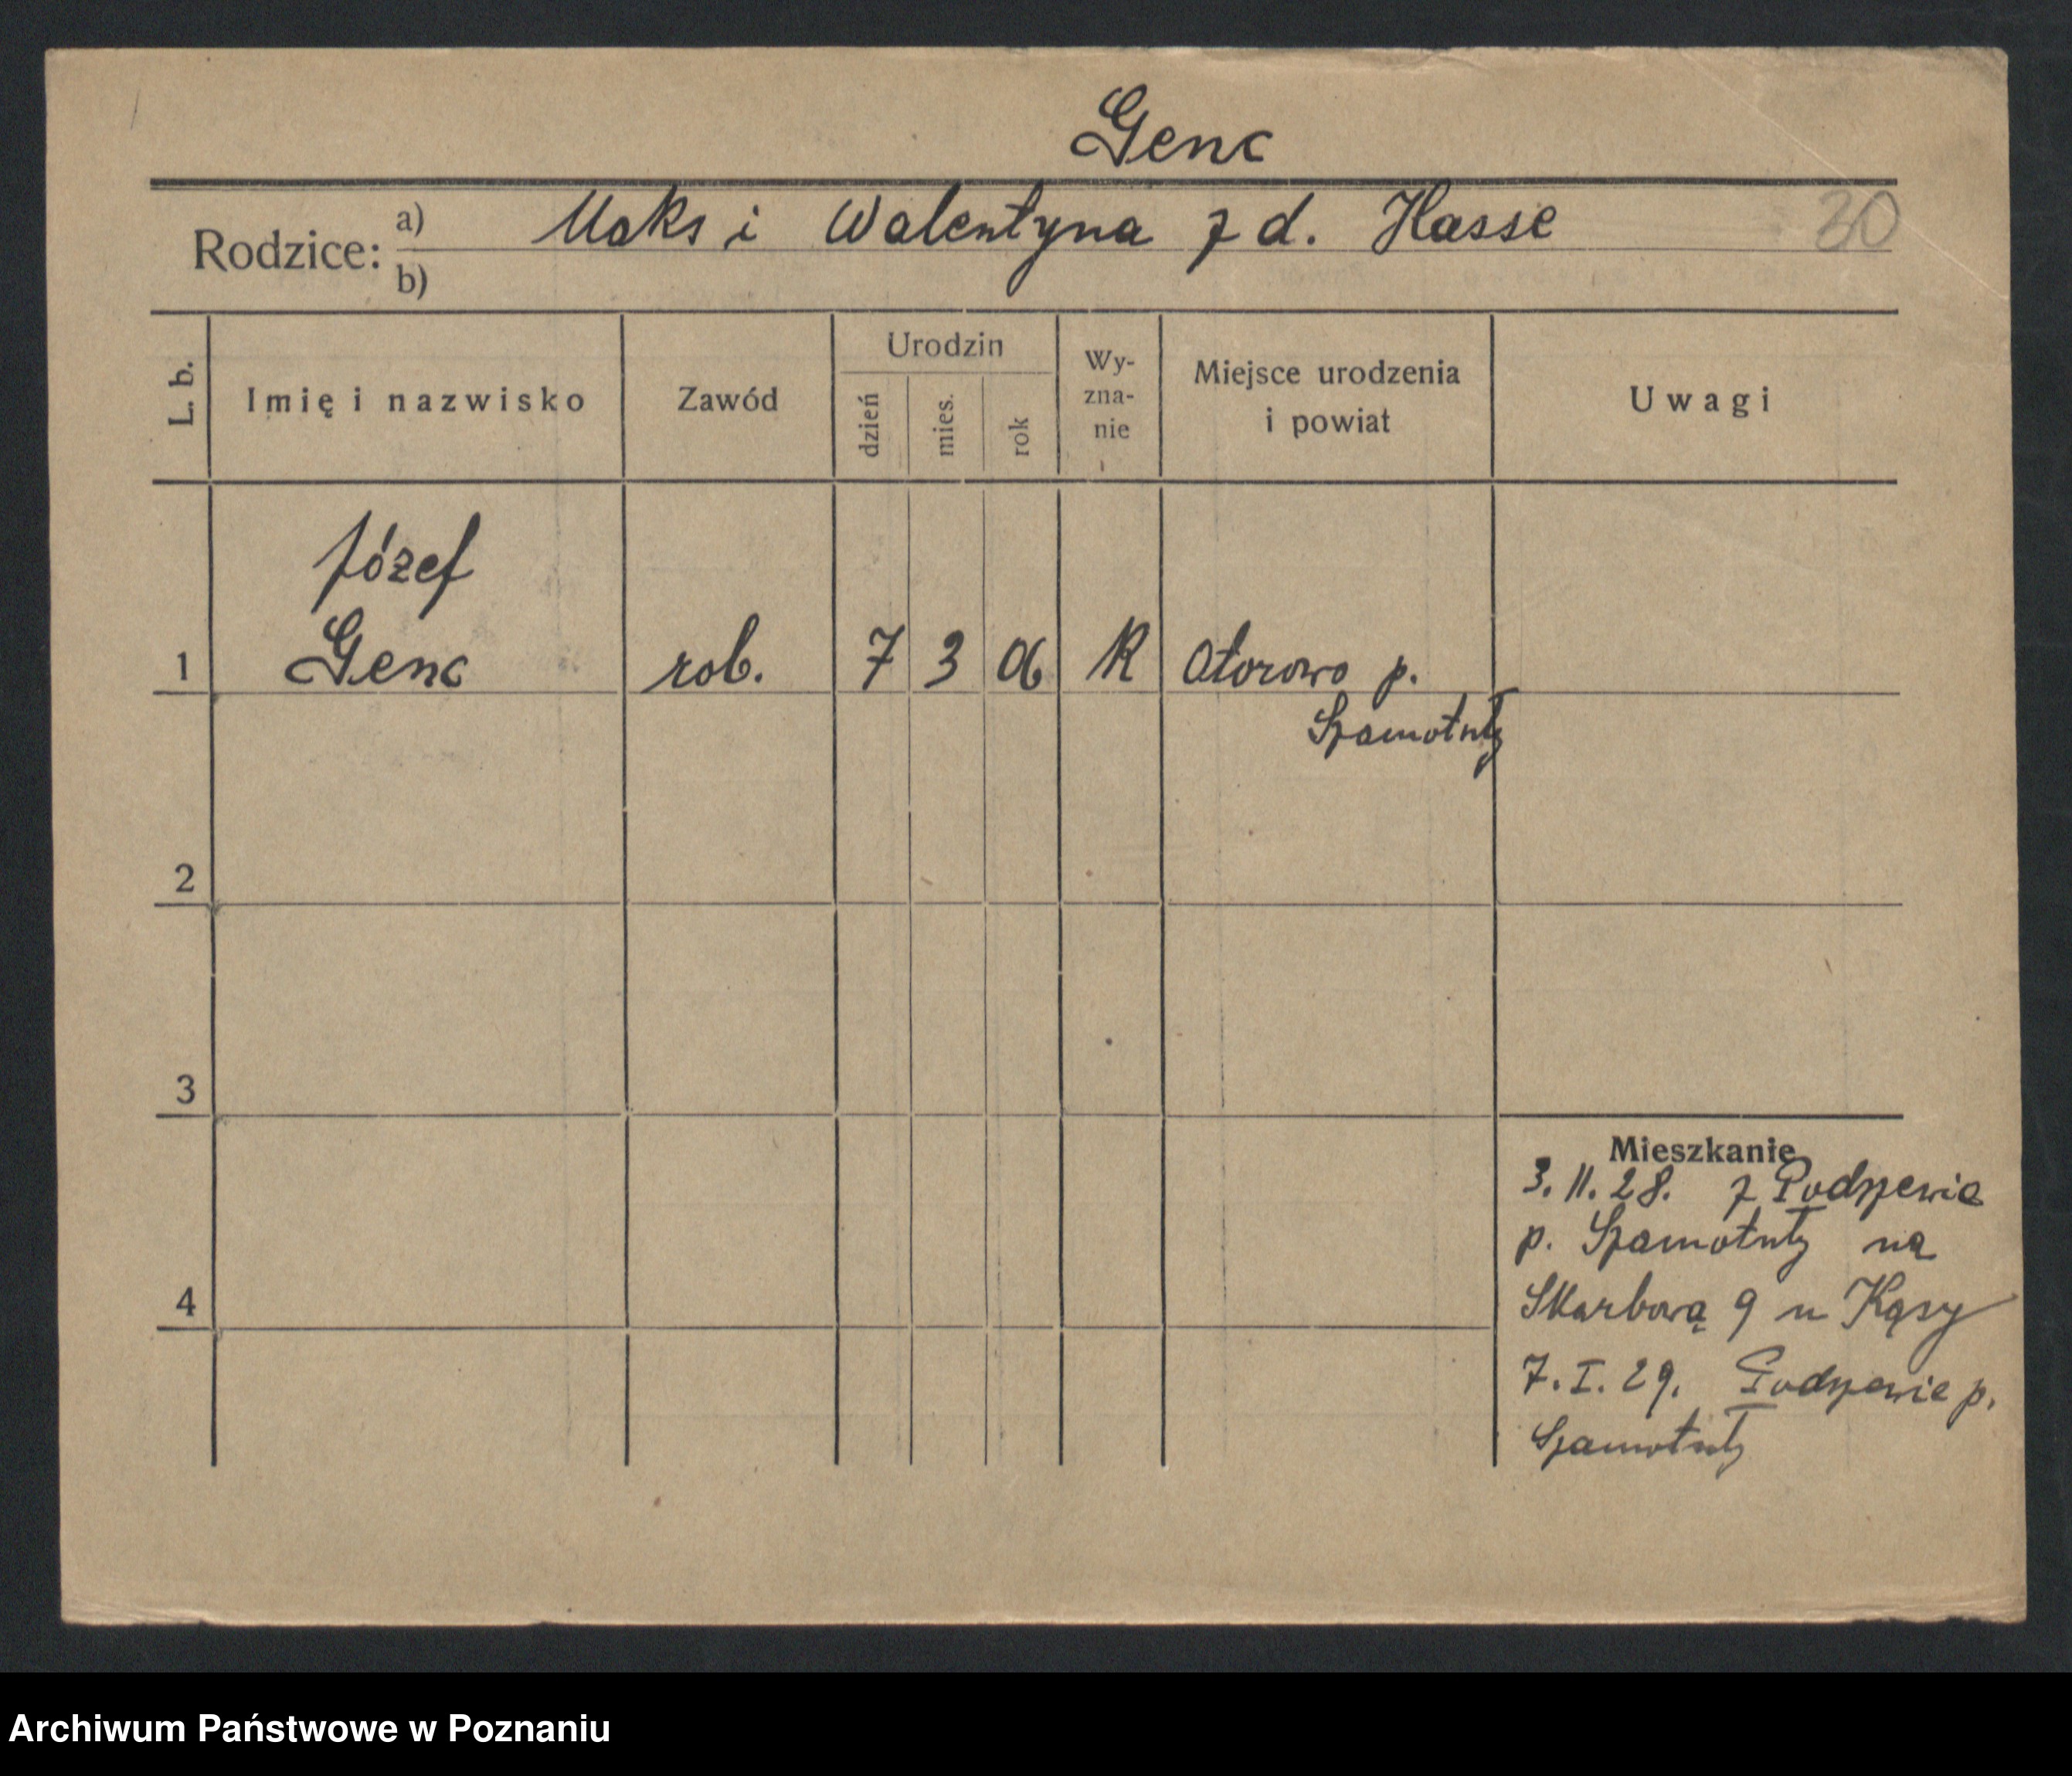 Genc
Rodzice: a) Maks i Walentyna z d. Hasse 30
b)
L. b. Imię i nazwisko Zawód Urodzin dzień mies. rok Wy-zna-nie Miejsce urodzenia i powiat Uwagi
Józef
1 Genc rob. 7 3 06 R Otorowo p.
Szamotuły
2
3
Mieszkanie
3. 11. 28. z Podrzewie
p. Szamotuły na
4 Skarbową 9 u Kąsy
7. I. 29. Podrzewie p.
Szamotuły
Archiwum Państwowe w Poznaniu